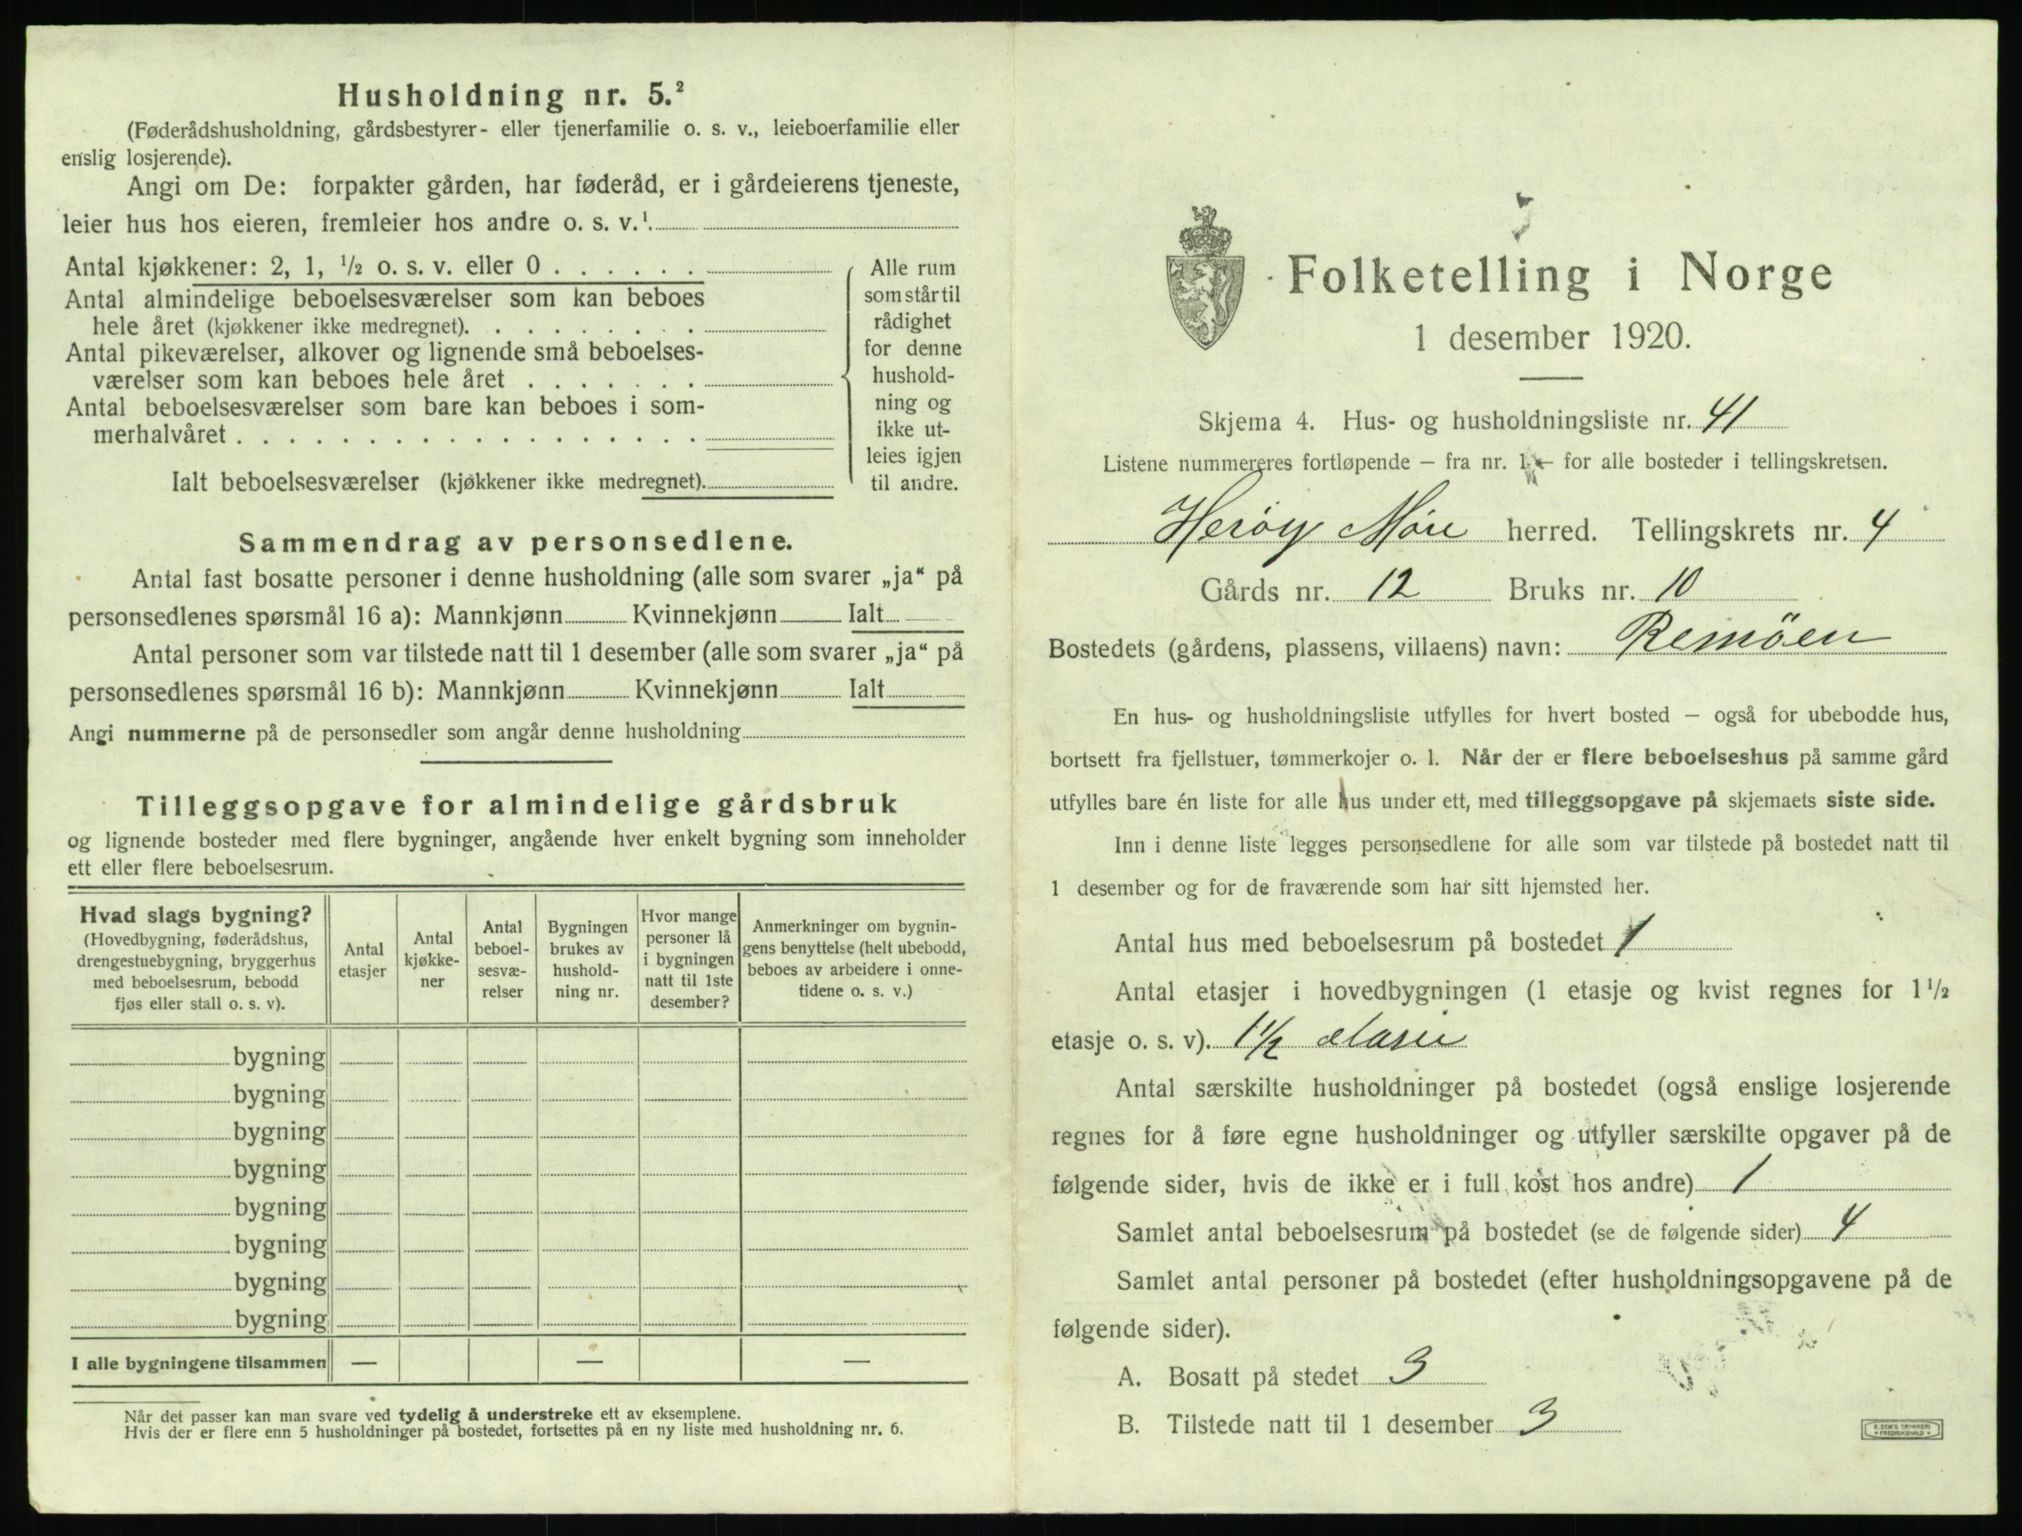 Husholdning nr. 5.²
(Føderådshusholdning, gårdsbestyrer- eller tjenerfamilie o. s. v., leieboerfamilie eller
enslig losjerende).
Angi om De: forpakter gården, har føderåd, er i gårdeierens tjeneste,
leier hus hos eieren, fremleier hos andre o. s. v.¹
Antal kjøkkener: 2, 1, ½ o. s. v. eller 0
Antal almindelige beboelsesværelser som kan beboes
hele året (kjøkkener ikke medregnet).
Antal pikeværelser, alkover og lignende små beboelses-
værelser som kan beboes hele året
Antal beboelsesværelser som bare kan beboes i som-
merhalvåret
Ialt beboelsesværelser (kjøkkener ikke medregnet).
Alle rum
som står til
rådighet
for denne
hushold-
ning og
ikke ut-
leies igjen
til andre.
Sammendrag av personsedlene.
Antal fast bosatte personer i denne husholdning (alle som svarer „ja“ på
personsedlenes spørsmål 16 a): Mannkjønn Kvinnekjønn Ialt
Antal personer som var tilstede natt til 1 desember (alle som svarer „ja“ på
personsedlenes spørsmål 16 b): Mannkjønn Kvinnekjønn Ialt
Angi nummerne på de personsedler som angår denne husholdning
Tilleggsopgave for almindelige gårdsbruk
og lignende bosteder med flere bygninger, angående hver enkelt bygning som inneholder
ett eller flere beboelsesrum.
Hvad slags bygning?
(Hovedbygning, føderådshus,
drengestuebygning, bryggerhus
med beboelsesrum, bebodd
fjøs eller stall o. s. v).
Antal
etasjer
Antal
kjøkke-
ner
Antal
beboel-
sesvæ-
relser
Bygningen
brukes av
hushold-
ning nr.
Hvor mange
personer lå
i bygningen
natt til 1ste
desember?
Anmerkninger om bygnin-
gens benyttelse (helt ubebodd,
beboes av arbeidere i onne-
tidene o. s. v.)
bygning
bygning
bygning
bygning
bygning
bygning
bygning
bygning
I alle bygningene tilsammen — — —
Når det passer kan man svare ved tydelig å understreke ett av eksemplene.
Hvis der er flere enn 5 husholdninger på bostedet, fortsettes på en ny liste med husholdning nr. 6.
Folketelling i Norge
1 desember 1920.
Skjema 4. Hus- og husholdningsliste nr. 41
Listene nummereres fortløpende — fra nr. 1 — for alle bosteder i tellingskretsen.
Herøy Møre herred. Tellingskrets nr. 4
Gårds nr. 12 Bruks nr. 10
Bostedets (gårdens, plassens, villaens) navn: Remøen
En hus- og husholdningsliste utfylles for hvert bosted — også for ubebodde hus,
bortsett fra fjellstuer, tømmerkojer o. l. Når der er flere beboelseshus på samme gård
utfylles bare én liste for alle hus under ett, med tilleggsopgave på skjemaets siste side.
Inn i denne liste legges personsedlene for alle som var tilstede på bostedet natt til
1 desember og for de fraværende som har sitt hjemsted her.
Antal hus med beboelsesrum på bostedet 1
Antal etasjer i hovedbygningen (1 etasje og kvist regnes for 1½
etasje o. s. v). 1½ etasie
Antal særskilte husholdninger på bostedet (også enslige losjerende
regnes for å føre egne husholdninger og utfyller særskilte opgaver på de
følgende sider, hvis de ikke er i full kost hos andre) 1
Samlet antal beboelsesrum på bostedet (se de følgende sider) 4
Samlet antal personer på bostedet (efter husholdningsopgavene på de
følgende sider).
A. Bosatt på stedet 3
B. Tilstede natt til 1 desember 3
E. SEM'S TRYKKERI
FREDRIKSHALD